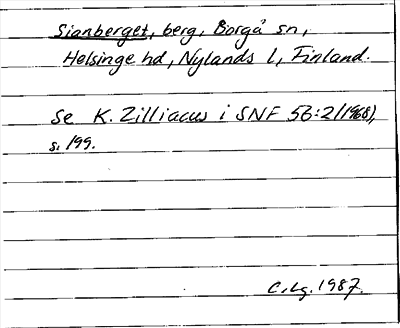 Sianberget, berg, Borgå sn,
Helsinge hd, Nylands l, Finland.
Se K. Zilliacus i SNF 56:2 (1968),
s. 199.
C. Lg. 1987.